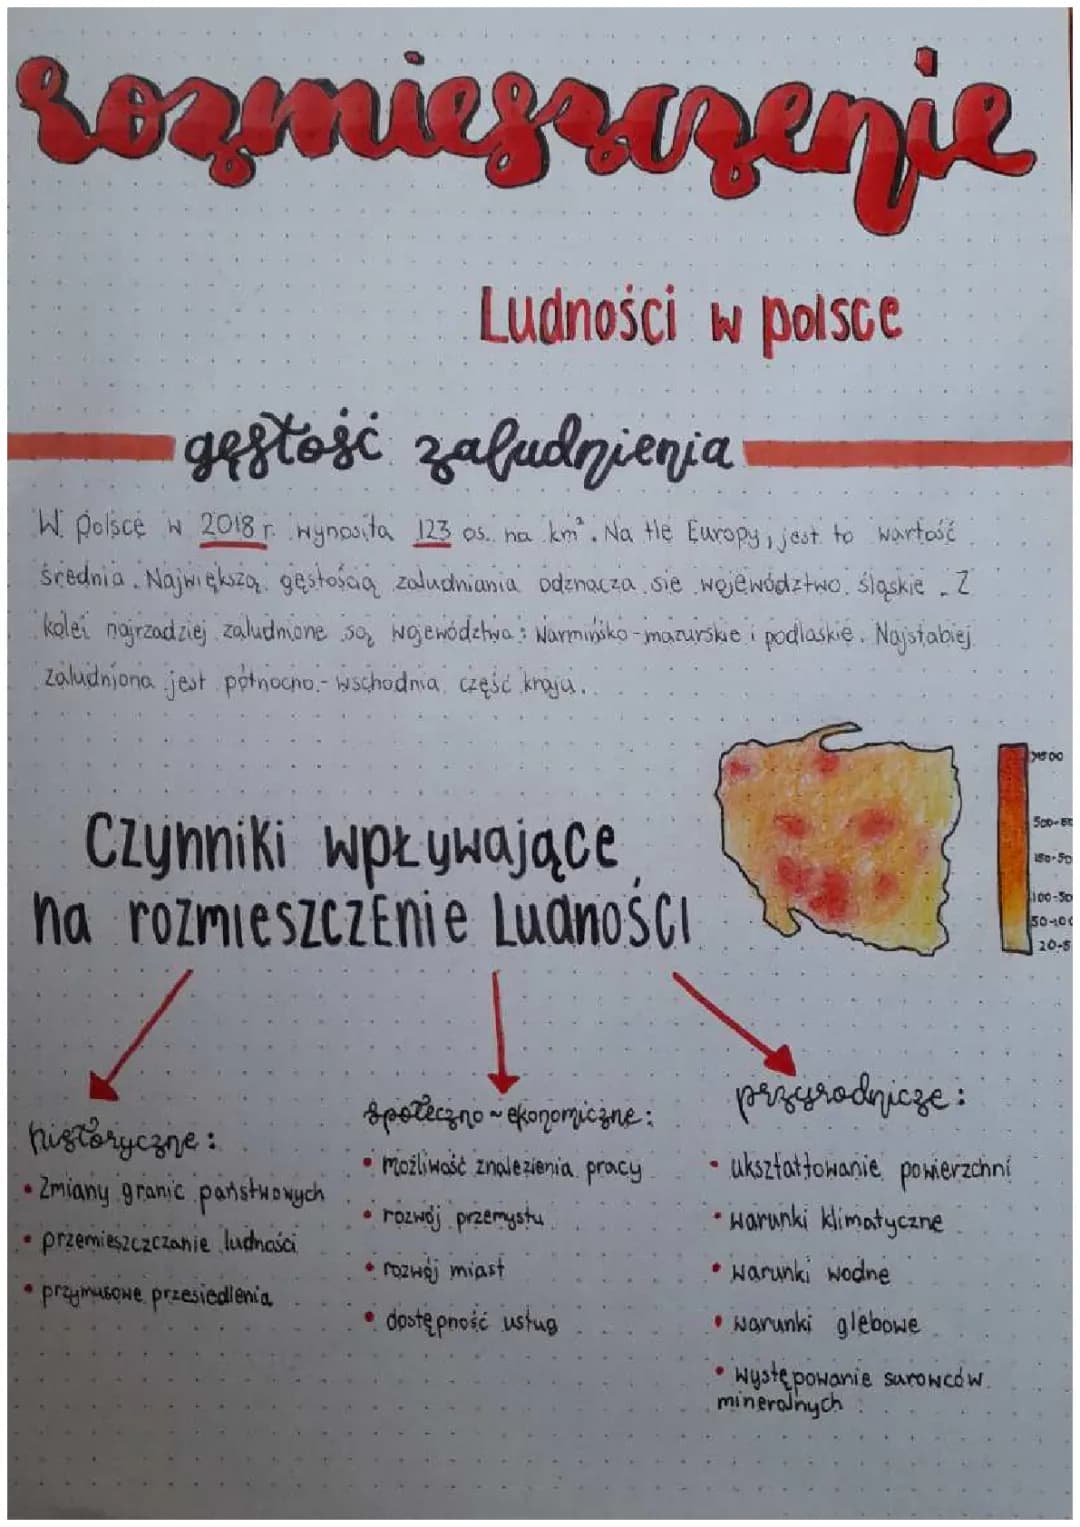 rozmieszczenie
Ludności w polsce
gęstość zaludnienia
W Polsce w 2018 r. wynosiła 123 os. na km². Na tle Europy, jest to wartość
średnia. Największą gęstością zaludniania odznacza się województwo śląskie. Z
kolei najrzadziej zaludnione są województwa: Warmińsko-mazurskie i podlaskie. Najsłabiej
zaludniona jest północno-wschodnia część kraju.
500-
100-50
50-100
20-5
Czynniki wpływające
na rozmieszczEnie LudnoŚCI
historyczne:
• Zmiany granic państwowych
• przemieszczczanie ludności
• przymusowe przesiedlenia
społeczno~ekonomiczne:
• możliwość znalezienia pracy
• rozwój przemysłu
• rozwój miast
• dostępność usług
przyrodnicze:
• ukształtowanie powierzchni
• warunki klimatyczne
• warunki wodne
• warunki glebowe
• występowanie surowców
mineralnych